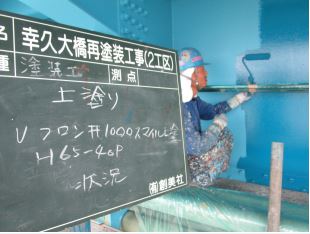 名 幸久大橋再塗装工事(2工区)
種 塗装工 測点
上塗り
Vフロン#100Dスマイル上塗
H65-40P
状況
㈲創美社